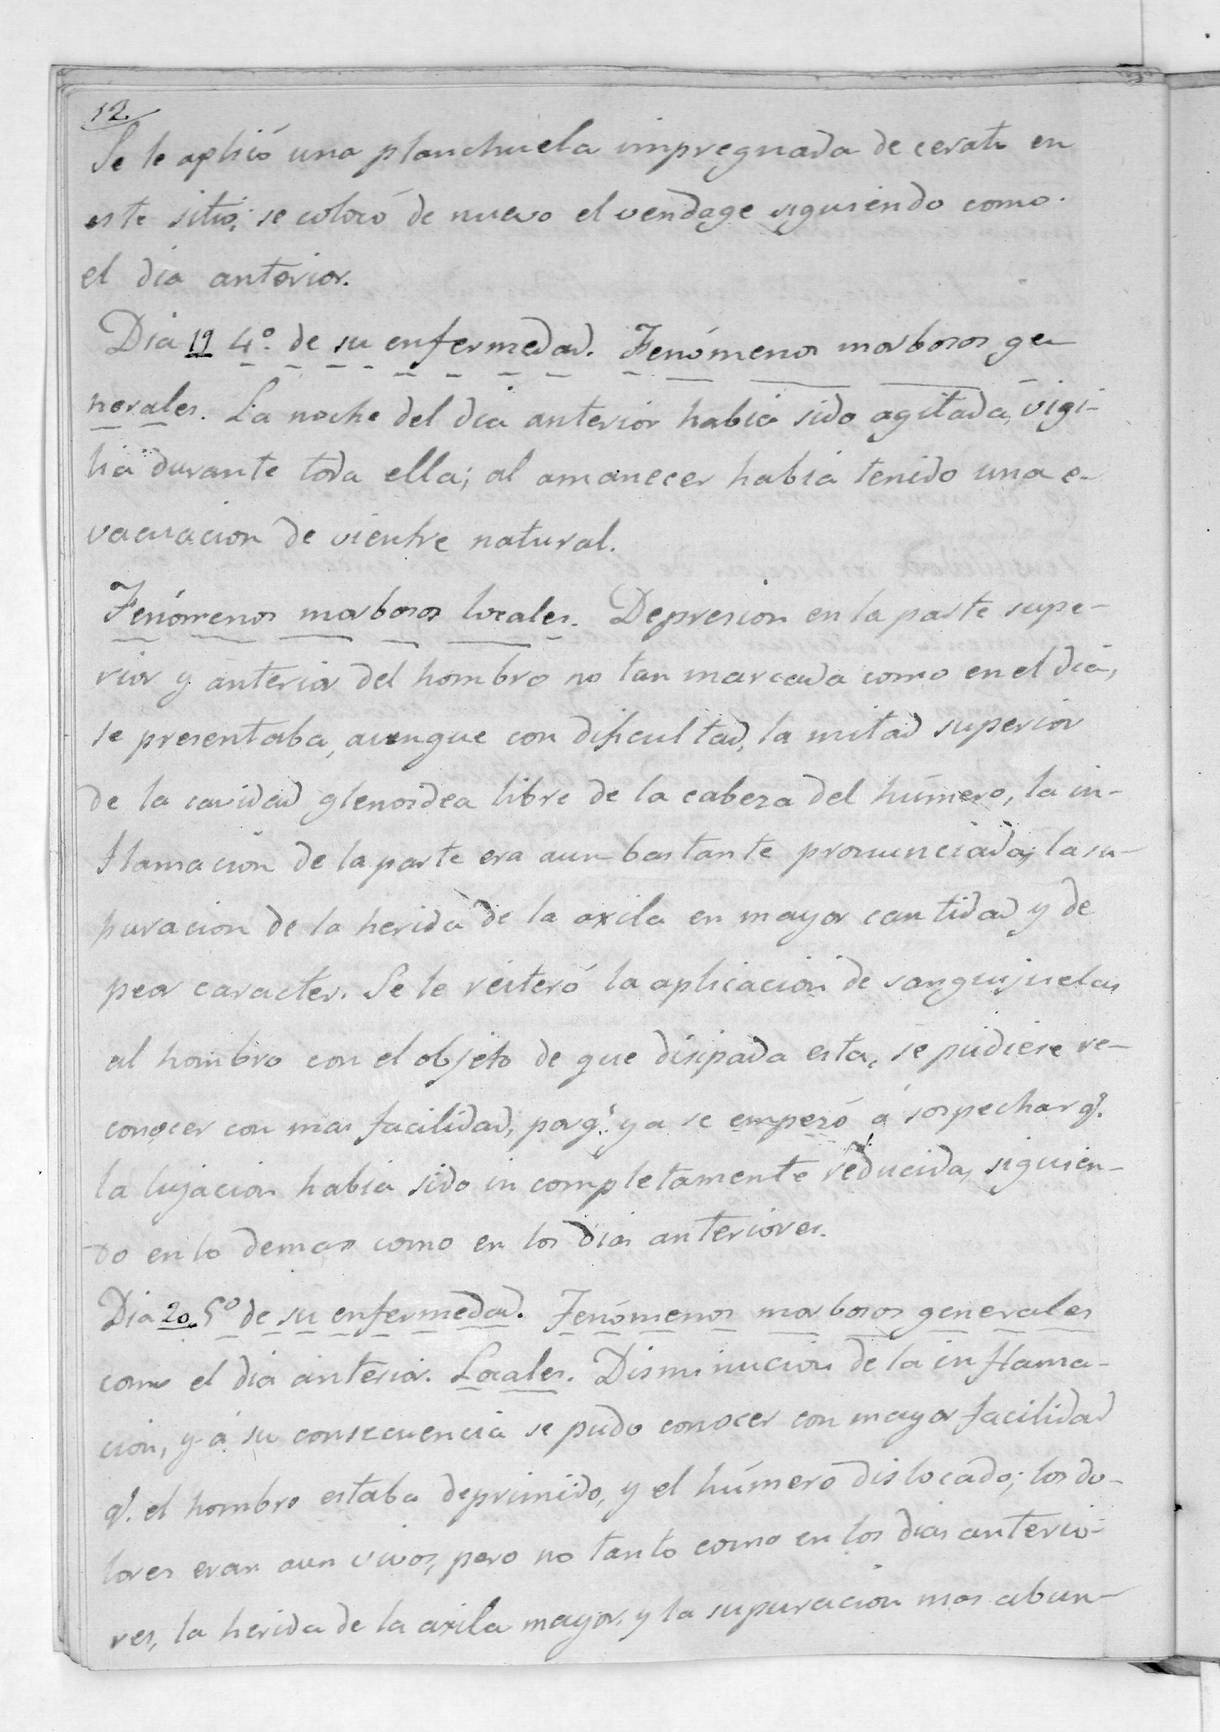 12.
Se le aplicó una planchuela impregnada de cerato en
este sitio; se colocó de nuevo el vendage siguiendo como
el dia anterior.
Dia 19 4º. de su enfermedad. Fenómenos morbosos ge-
nerales. La noche del dia anterior habia sido agitada, vigi-
lia durante toda ella; al amanecer habia tenido una e-
vacuacion de vientre natural.
Fenómenos morbosos locales. Depresion en la parte supe-
rior y anterior del hombro no tan marcada como en el dia,
se presentaba, aunque con dificultad, la mitad superior
de la cavidad glenoidea libre de la cabeza del húmero, la in-
flamacion de la parte era aun bastante pronunciada; la su-
puracion de la herida de la axila en mayor cantidad y de
peor caracter. Se le reiteró la aplicacion de sanguijuelas
al hombro con el objeto de que disipada esta, se pudiese re-
conocer con mas facilidad, porq.e ya se empezó á sospechar q.e
la lujacion habia sido incompletamente reducida, siguien-
do en lo demas como en los dias anteriores.
Dia 20 5º de su enfermedad. Fenómenos morbosos generales
como el dia anterior. Locales. Disminucion de la inflama-
cion, y á su consecuencia se pudo conocer con mayor facilidad
q.e el hombro estaba deprimido, y el húmero dislocado; los do-
lores eran aun vivos, pero no tanto como en los dias anterio-
res, la herida de la axila mayor, y la supuracion mas abun-